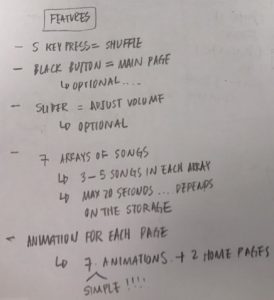 FEATURES
- 5 KEY PRESS = SHUFFLE
- BLACK BUTTON = MAIN PAGE
↳ OPTIONAL....
- SLIDER = ADJUST VOLUME
↳ OPTIONAL
- 7 ARRAYS OF SONGS
↳ 3-5 SONGS IN EACH ARRAY
↳ MAX 20 SECONDS ... DEPENDS
ON THE STORAGE
- ANIMATION FOR EACH PAGE
↳ 7 ANIMATIONS + 2 HOME PAGES
SIMPLE !!!!